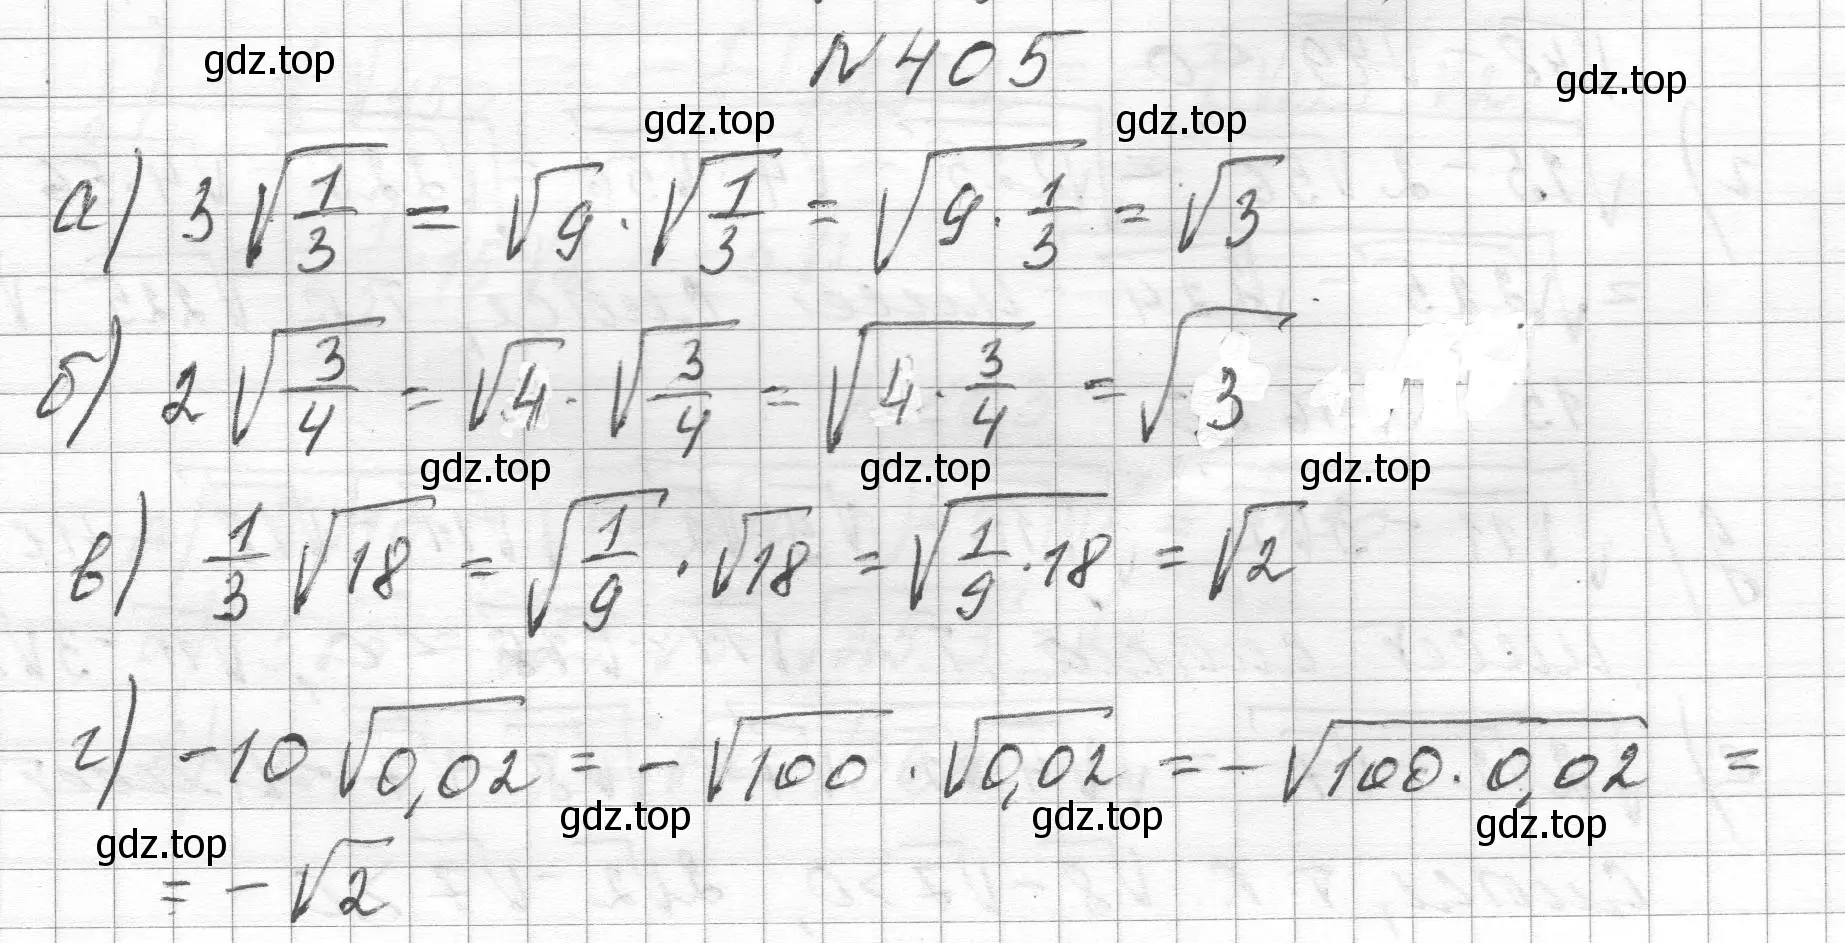 gdz.top
N 405
gdz.top
gdz.top gdz.top
а) 3√(1/3) = √9 · √(1/3) = √(9 · 1/3) = √3
б) 2√(3/4) = √4 · √(3/4) = √(4 · 3/4) = √3
gdz.top gdz.top gdz.top
в) 1/3 √18 = √(1/9) · √18 = √(1/9 · 18) = √2
г) -10√0,02 = -√100 · √0,02 = -√(100 · 0,02) =
gdz.top gdz.top gdz.top gdz.top
= -√2